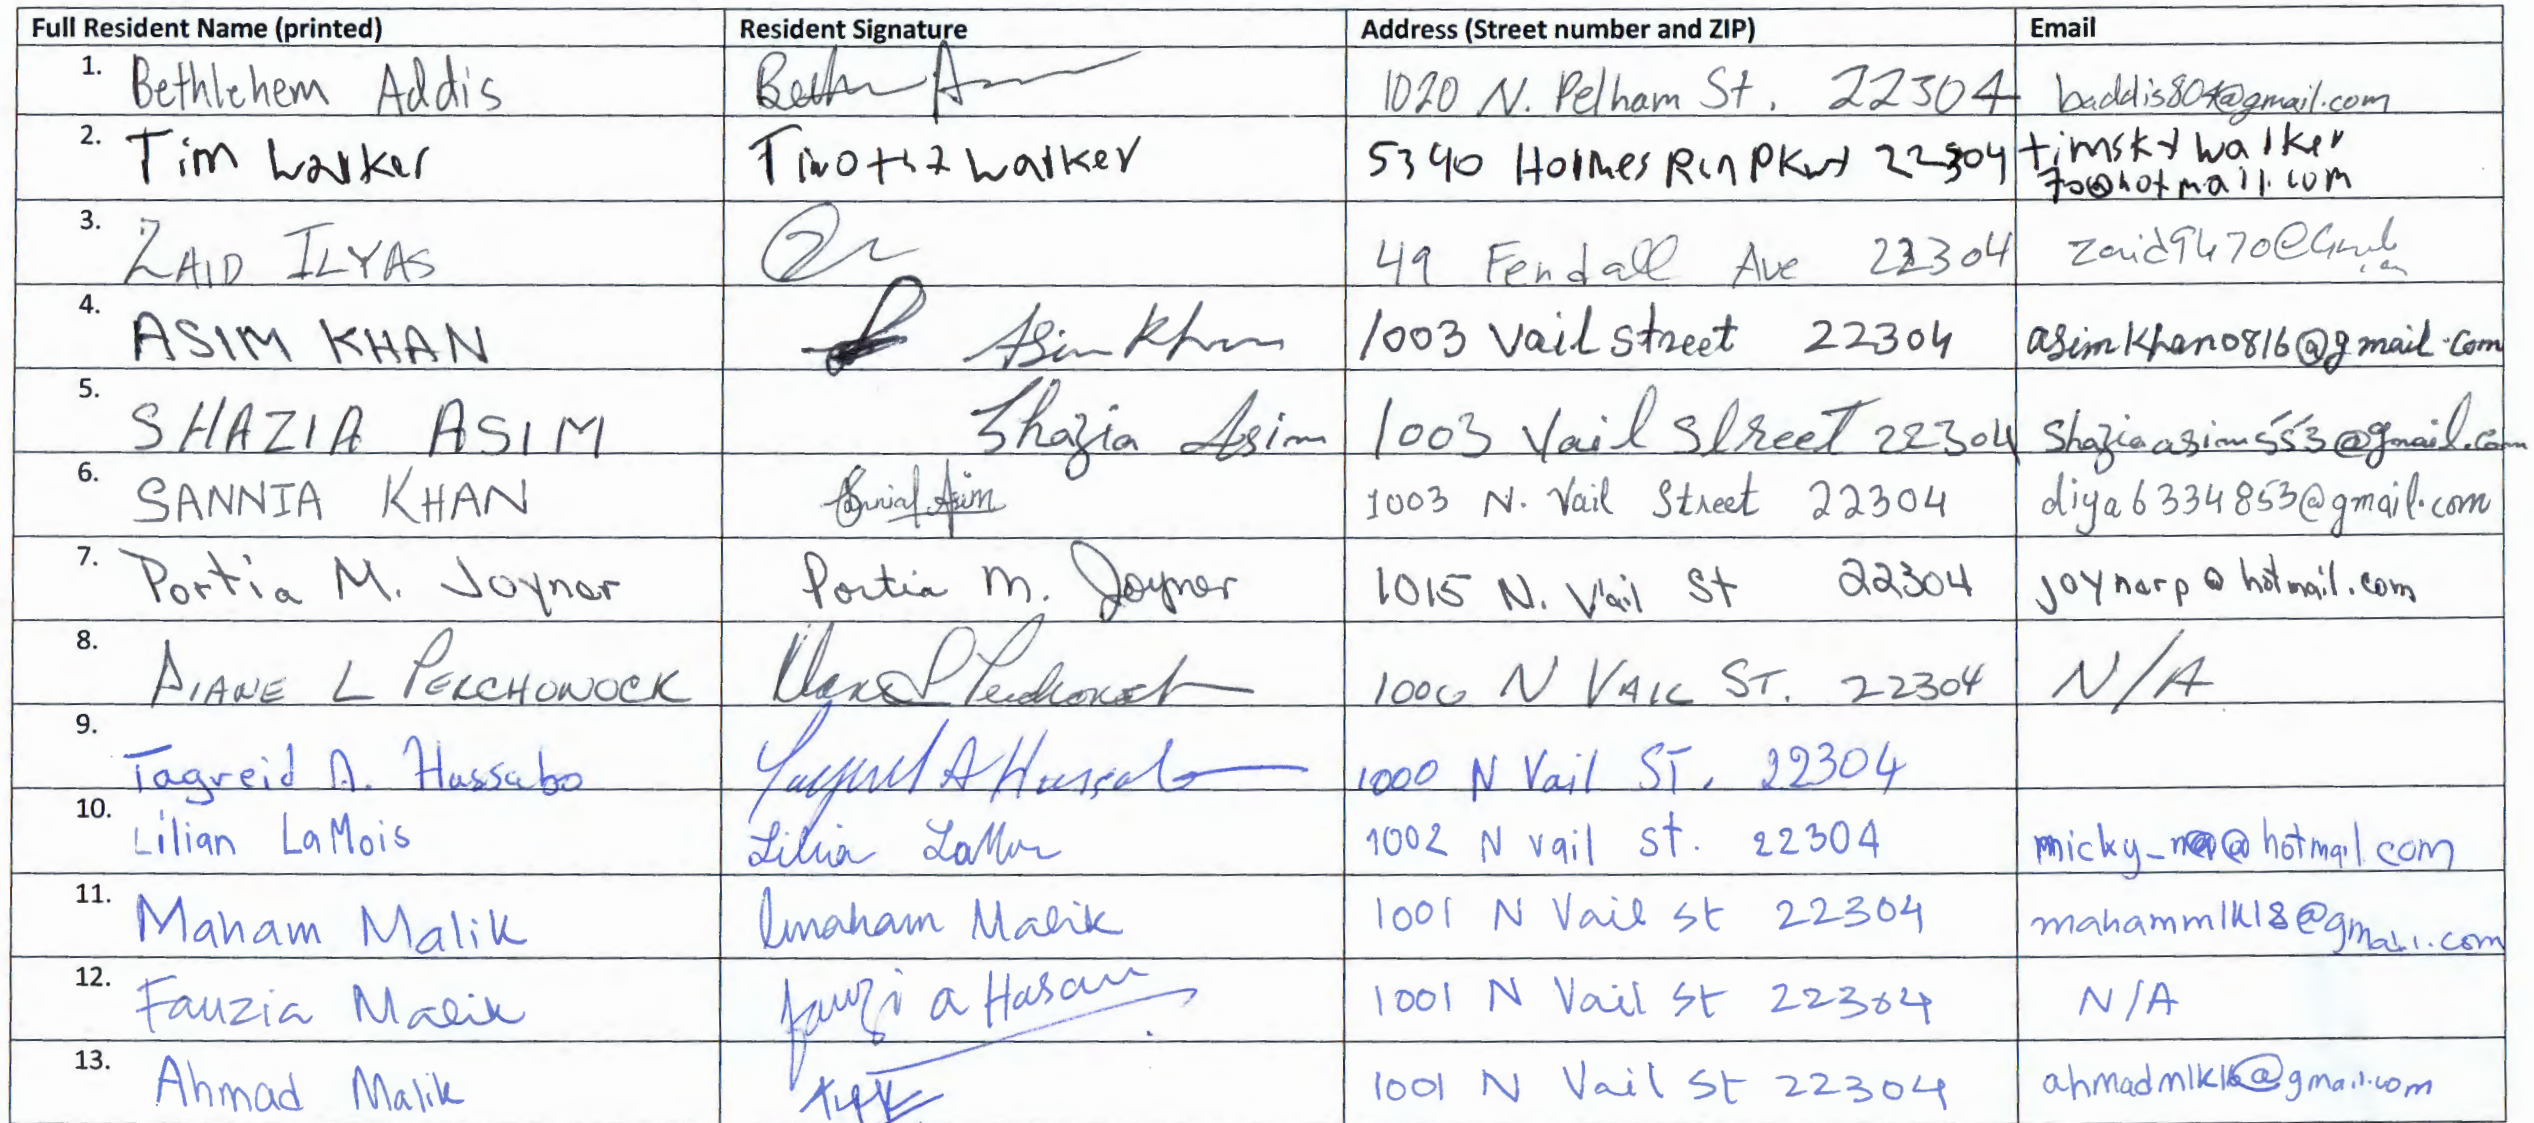 Full Resident Name (printed) Resident Signature Address (Street number and ZIP) Email
1. Bethlehem Addis 1020 N. Pelham St. 22304 baddis804@gmail.com
2. Tim Walker Timothy Walker 5340 Holmes Run Pkwy 22304 timskywalker
70@hotmail.com
3. ZAID ILYAS 49 Fendall Ave 22304 zaid9470@
4. ASIM KHAN Asim Khan 1003 Vail street 22304 asimkhan0816@gmail.com
5. SHAZIA ASIM Shazia Asim 1003 Vail Street 22304 Shaziaasim553@gmail.com
6. SANNIA KHAN 1003 N. Vail Street 22304 diya6334853@gmail.com
7. Portia M. Joyner Portia M. Joyner 1015 N. Vail St 22304 joynerp@hotmail.com
8. DIANE L PERCHONOCK Diane L Perchonock N VAIL ST. 22304 N/A
9. Tagreid A. Hassabo 1000 N Vail ST. 22304
10. Lilian LaMois 1002 N vail st. 22304
11. Maham Malik Maham Malik 1001 N Vail St 22304 mahammlk18@gmail.com
12. Fauzia Malik Fauzia Hasan 1001 N Vail St 22304 N/A
13. Ahmad Malik 1001 N Vail St 22304 ahmadmlk16@gmail.com